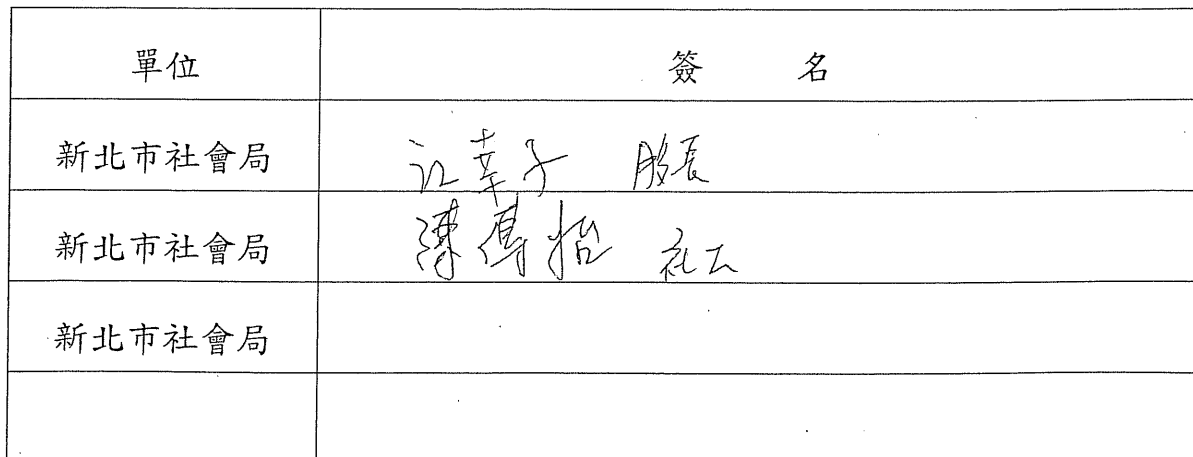 單位 簽 名
新北市社會局 江幸子 股長
新北市社會局 陳 怡 社工
新北市社會局